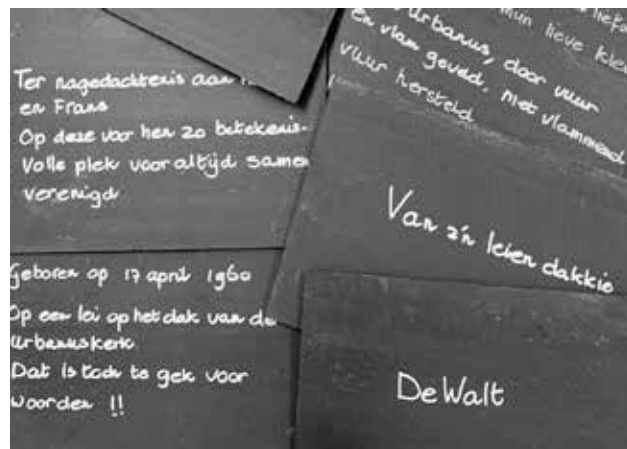 Ter nagedachtenis aan
en Frans
Op deze voor hen zo betekenis-
volle plek voor altijd samen
verenigd
Geboren op 17 april 1960
Op een lei op het dak van de
Urbanuskerk
Dat is toch te gek voor
woorden !!
mijn lieve
Urbanus, door vuur
en vlam geveld, met vlammend
vuur hersteld
Van z'n leien dakkie
DeWalt